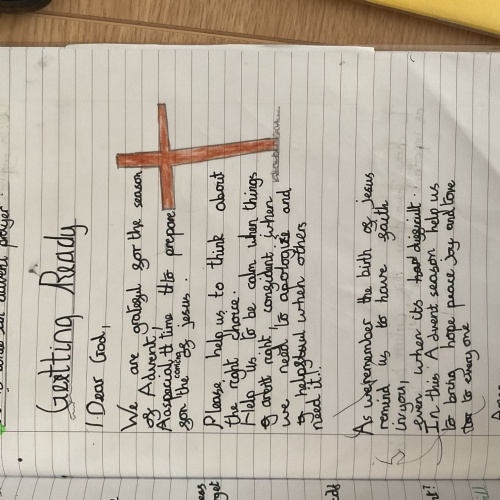 advent prayer.
Getting Ready
Dear God,
We are grateful for the season
of Advent!
A special time to prepare
for the coming of jesus.
Please help us to think about
the right choice.
Help us to be calm when things
aren't right, confident when
we need to apologise and
helpful when others
need it!.
As we remember the birth of jesus
remind us to have faith
in you,
even when its difficult.
In this Advent season help us
to bring hope peace joy and love
to every one